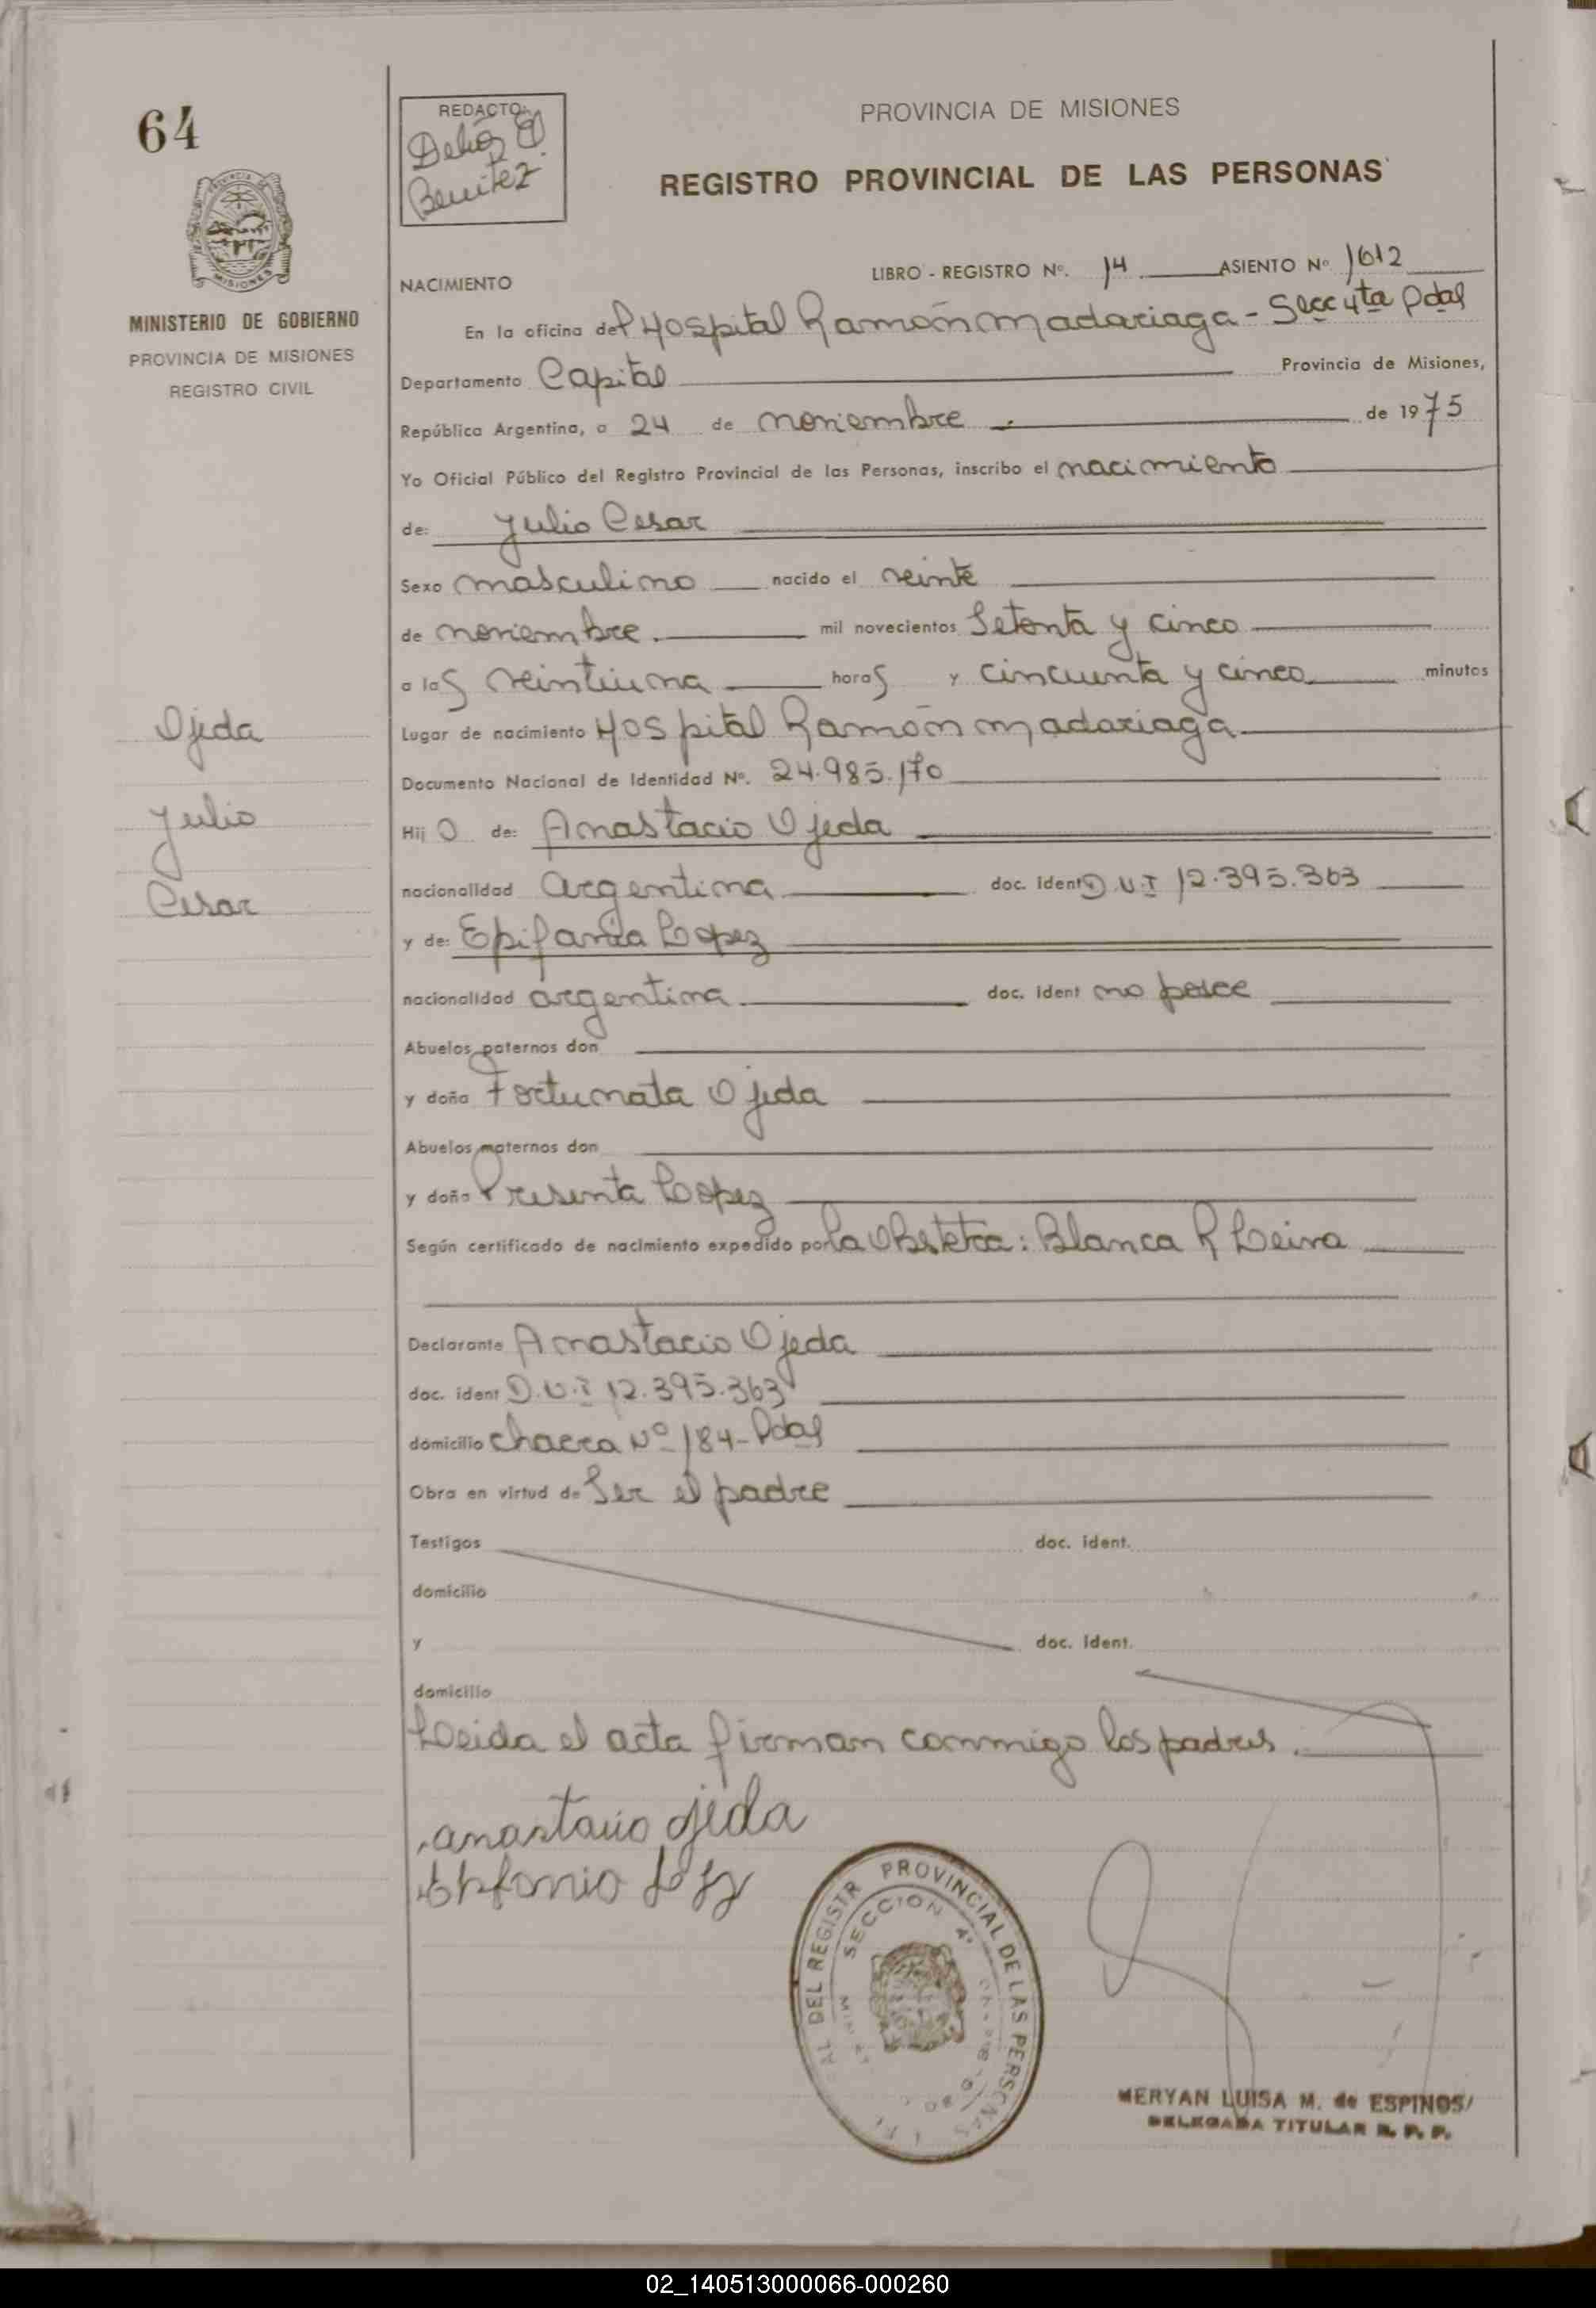 64
REDACTO:
Benitez
PROVINCIA DE MISIONES
REGISTRO PROVINCIAL DE LAS PERSONAS
MINISTERIO DE GOBIERNO
PROVINCIA DE MISIONES
REGISTRO CIVIL
NACIMIENTO
LIBRO - REGISTRO Nº. 14 ASIENTO Nº 1612
En la oficina del Hospital Ramón Madariaga - Secc 4ta Pdas
Departamento Capital Provincia de Misiones,
República Argentina, a 24 de noviembre de 1975
Yo Oficial Público del Registro Provincial de las Personas, inscribo el nacimiento
de: Julio Cesar
Sexo masculino nacido el veinte
de noviembre. mil novecientos Setenta y cinco
a las veintiuna horas y cincuenta y cinco minutos
Lugar de nacimiento Hospital Ramón Madariaga
Documento Nacional de Identidad Nº. 24.985.170
Hij o de: Anastacio Ojeda
nacionalidad argentina doc. ident D.U.I 12.395.363
y de: Epifania Lopez
nacionalidad argentina. doc. ident no posee
Abuelos paternos don
y doña Fortunata Ojeda
Abuelos maternos don
y doña Presenta Lopez
Según certificado de nacimiento expedido por la Obstetra: Blanca R Leiva
Declarante Anastacio Ojeda
doc. ident D.U.I 12.395.363
domicilio chacra Nº 184-Pdas
Obra en virtud de Ser el padre
Testigos doc. ident.
domicilio
y doc. ident.
domicilio
Leida el acta firman conmigo los padres.
anastacio ojeda
Ojeda
Julio
Cesar
DEL REGISTR PROVINCIAL DE LAS PERSONAS
SECCION 4ª
MERYAN LUISA M. de ESPINOS
DELEGADA TITULAR R. P. P.
02_140513000066-000260